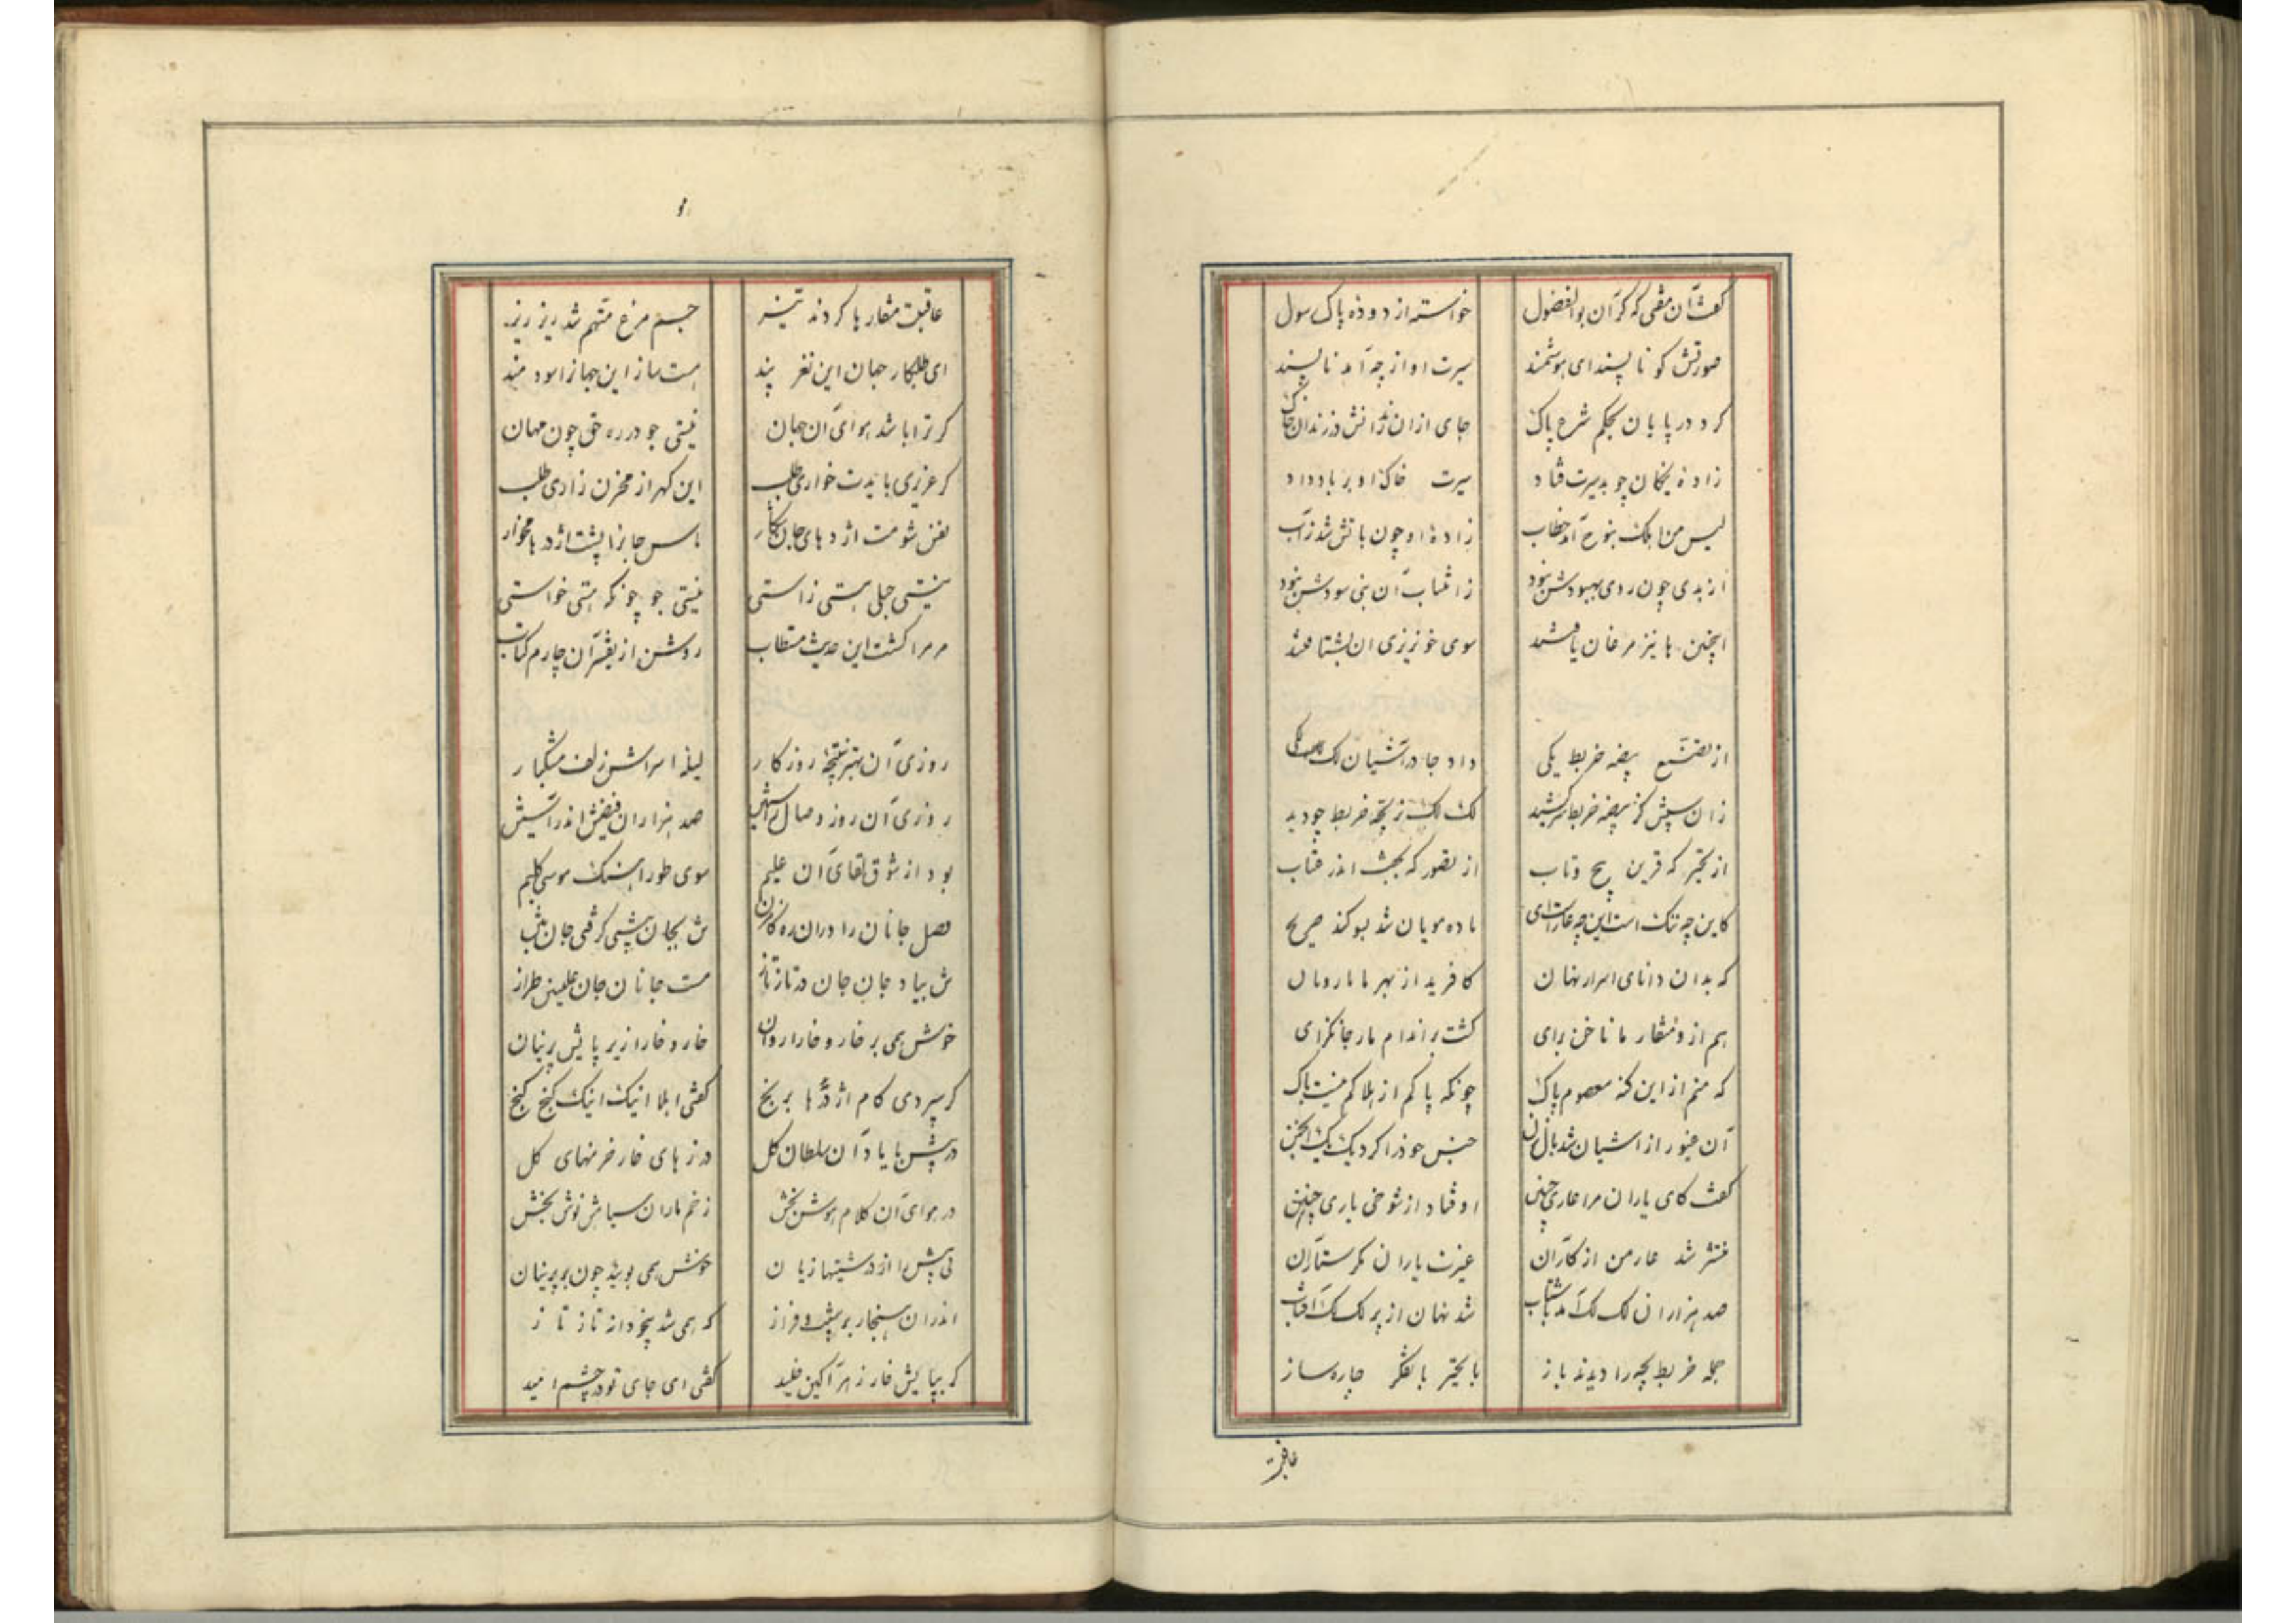 گفت آن مفتی که گر آن بوالفضول خواسته از دوده پاک رسول
صورتش کو ناپسند ای هوشمند سیرت او از چه آمد ناپسند
کرد در پایان بحکم شرع پاک جای ازان زندانش در زندان خاک
زادهٔ نیکان چو بدسیرت فتاد سیرت خاک او بر باد داد
لیس من اهلک بنوح آمد خطاب زادهٔ او چون باتش شد ز آب
از بدی چون روی بهبودش نبود ز انتساب آن بنی سودش نبود
اینچنین ها نیز مرغان یافتند سوی خونریزی ان بشتافتند
از تصنع بیضه خربط یکی داد جا در آشیان لک لکی
زان سپس کز بیضه خربط سر کشید لک لک نر بچه خربط چو دید
از تحیر که قرین پیچ و تاب از تصور که بجفت اندر عتاب
کاین چه ننگ است این چه عار است ای ماده مویان شد بسوگند صریح
که بدان دانای اسرار نهان کافرید از بهر ما مار و مان
هم از و منقار ما ناخن برای گشت بر اندام مار جانگزای
که منم از این گنه معصوم پاک چونکه پاکم از هلاکم نیست باک
آن غیور از اشیان شد بال زن جنس خود را کرد یک یک انجمن
گفت کای یاران مرا عاری چنین اوفتاد از شوخی یاری چنین
منتشر شد عار من از کار آن غیرت یاران مگر ستار آن
صد هزاران لک لک آمد باشتاب شد نهان از پر لک لک آفتاب
جمله خربط بچه را دیدند باز با تحیر با تفکر چاره ساز
عاقبت
عاقبت منقار ها کردند تیز جسم مرغ متهم شد ریز ریز
ای طلبکار جهان این نغز پند هست ساز این جهانرا سودمند
گر ترا باشد هوای آن جهان نیستی جو در ره حق چون مهان
گر عزیزی بایدت خواری طلب این گهر از مخزن زاری طلب
نفس شومت اژدهای جان شکار پاس جانرا پشت اژدرها بخار
نیستی جلی هستی زاستی نیستی جو چونکه هستی خواستی
مر مرا گشت این حدیث مستطاب روشن از تفسیر آن چارم کتاب
روزی آن بهتر نتیجه روزگار لیلة اسراش زلف مشکبار
روزی آن روز وصال شهیش صد هزاران فیض اندر آستیش
بود از شوق لقای آن علیم سوی طور اهنگ موسی کلیم
فصل جانان را دران ره گامزن ش بجان پیشی گرفتی جان
ش بیاد جان جان در تاز تاز مست جانان جان علیین طراز
خوش همی بر خار و خارا روان خار و خارا زیر پایش پرنیان
گر سپردی کام اژدرها برنج گفتی ابلا اینک اینک گنج گنج
در پیش با یاد آن سلطان گل درزهای خار خرمنهای گل
در هوای آن کلام هوش بخش زخم ماران سیاش نوش بخش
نی پیش را از درشتیها زیان خوش همی پویید چون بر پرنیان
اندران هنجار بر شیب و فراز که همی شد بیخودانه تاز تاز
که بپایش خار زهر آگین خلید گفتی ای جای تو در چشم امید